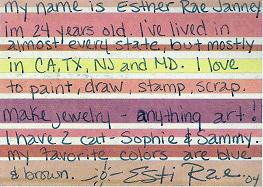 my name is Esther Rae Janney
im 24 years old. I've lived in
almost every state, but mostly
in CA, TX, NJ and MD. I love
to paint, draw, stamp, scrap.
make jewelry - anything art!
I have 2 cat - Sophie & Sammy.
my favorite colors are blue
& brown. Esti Rae. 04